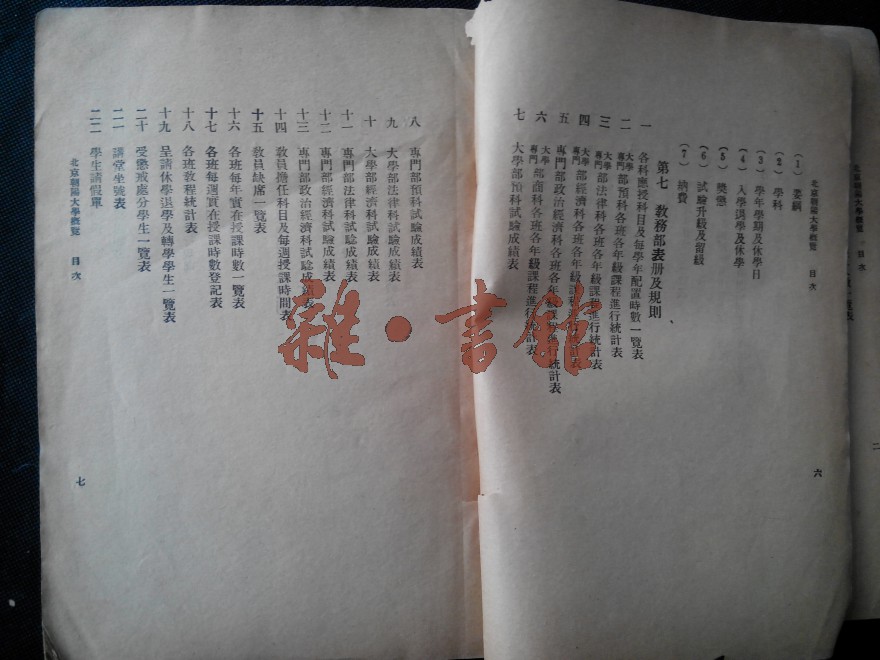 北京朝陽大學概覽 目次
六
(1) 要綱
(2) 學科
(3) 學年學期及休學日
(4) 入學退學及休學
(5) 獎懲
(6) 試驗升級及留級
(7) 納費
第七 教務部表册及規則
一 各科應授科目及每學年配置時數一覽表
二 大學專門部預科各班各年級課程進行統計表
三 大學專門部法律科各班各年級課程進行統計表
四 大學專門部經濟科各班各年級課程進行統計表
五 專門部政治經濟科各班各年級課程進行統計表
六 大學專門部商科各班各年級課程進行統計表
七 大學部預科試驗成績表
八 專門部預科試驗成績表
九 大學部法律科試驗成績表
十 大學部經濟科試驗成績表
十一 專門部法律科試驗成績表
十二 專門部經濟科試驗成績表
十三 專門部政治經濟科試驗成績表
十四 教員擔任科目及每週授課時間表
十五 教員缺席一覽表
十六 各班每年實在授課時數一覽表
十七 各班每週實在授課時數登記表
十八 各班教程統計表
十九 呈請休學退學及轉學學生一覽表
二十 受懲戒處分學生一覽表
二一 講堂坐號表
二二 學生請假單
北京朝陽大學概覽 目次
七
雜·書館